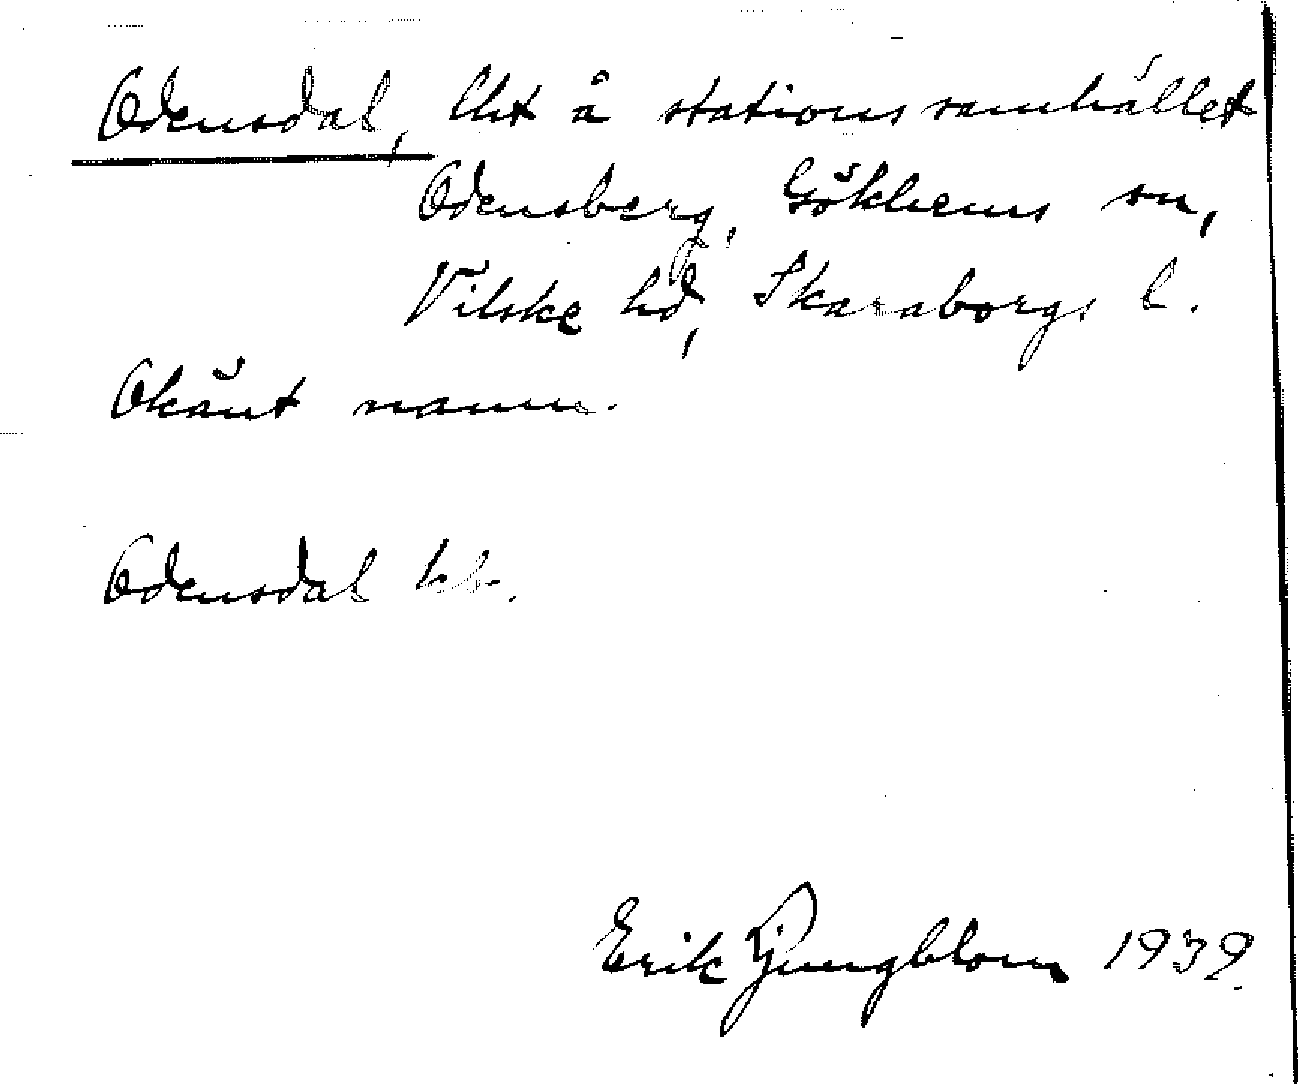 Odensdal, lht å stationssamhället
Odensberg, Gökhems sn,
Vilske hd, Skaraborgs l.
Okänt namn.
Odensdal kb.
Erik Ljungblom 1939.